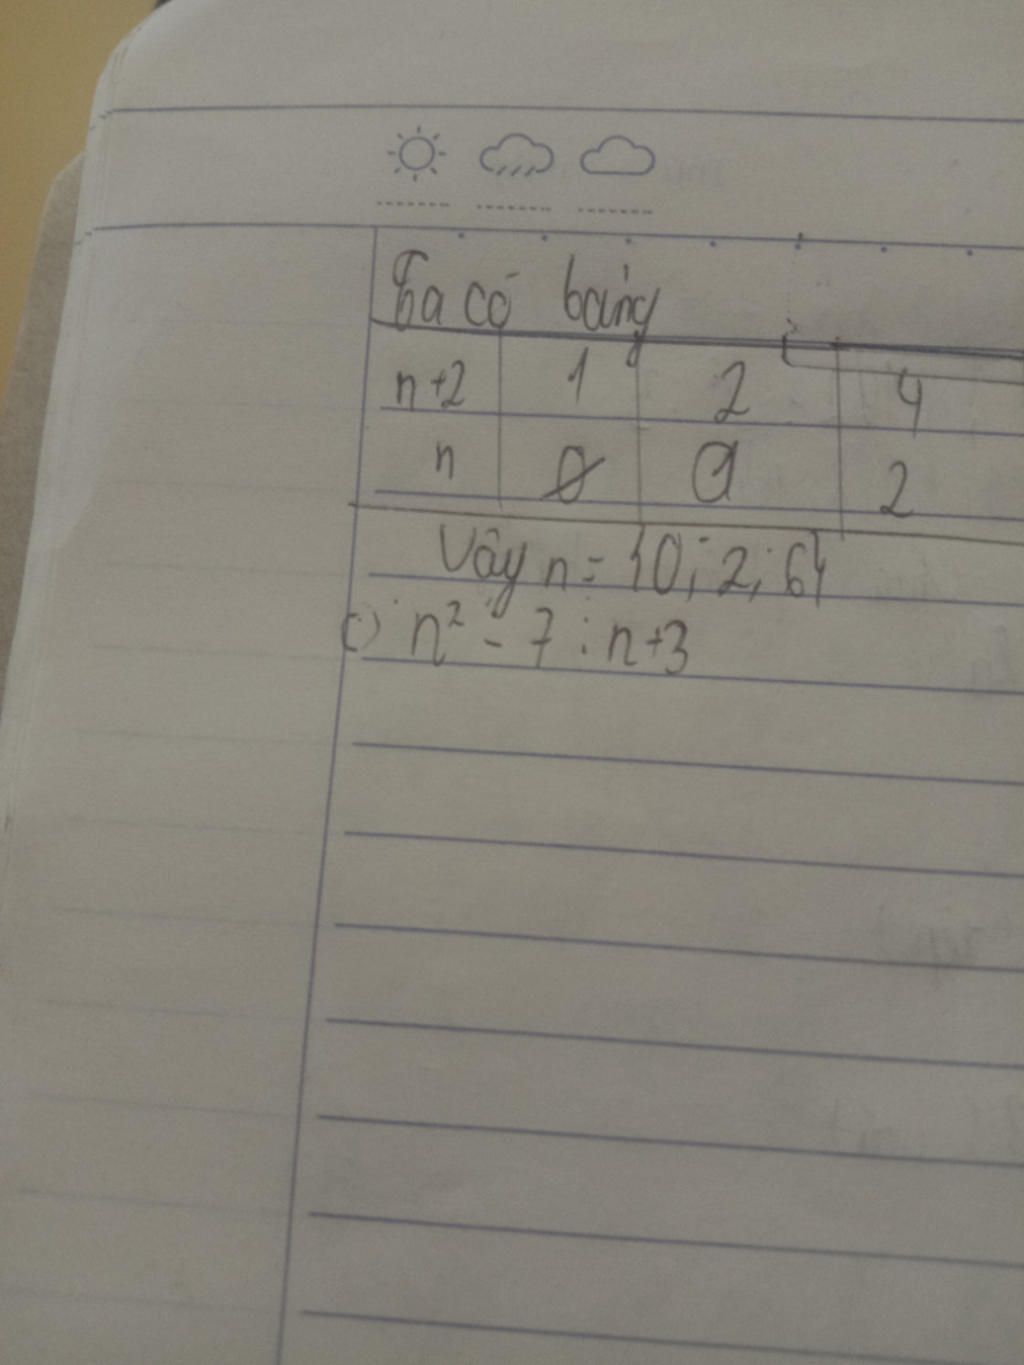 Ta có bảng
n+2 1 2 4
n ∅ 0 2
Vậy n = {0; 2; 6}
c) n² - 7 ⋮ n+3